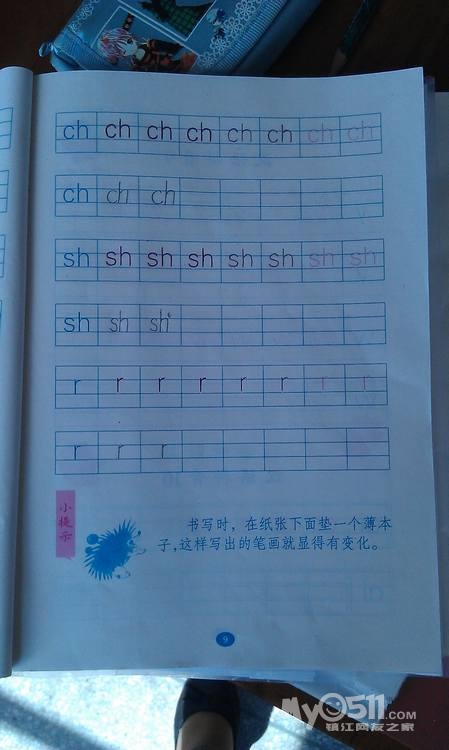 ch ch ch ch ch ch ch ch
ch ch ch
sh sh sh sh sh sh sh sh
sh sh sh
r r r r r r r r
r r r
小提示
书写时，在纸张下面垫一个薄本
子,这样写出的笔画就显得有变化。
9
My0511.com
镇江网友之家